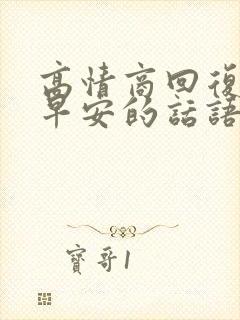 高情商回復
早安的話語
寶哥1